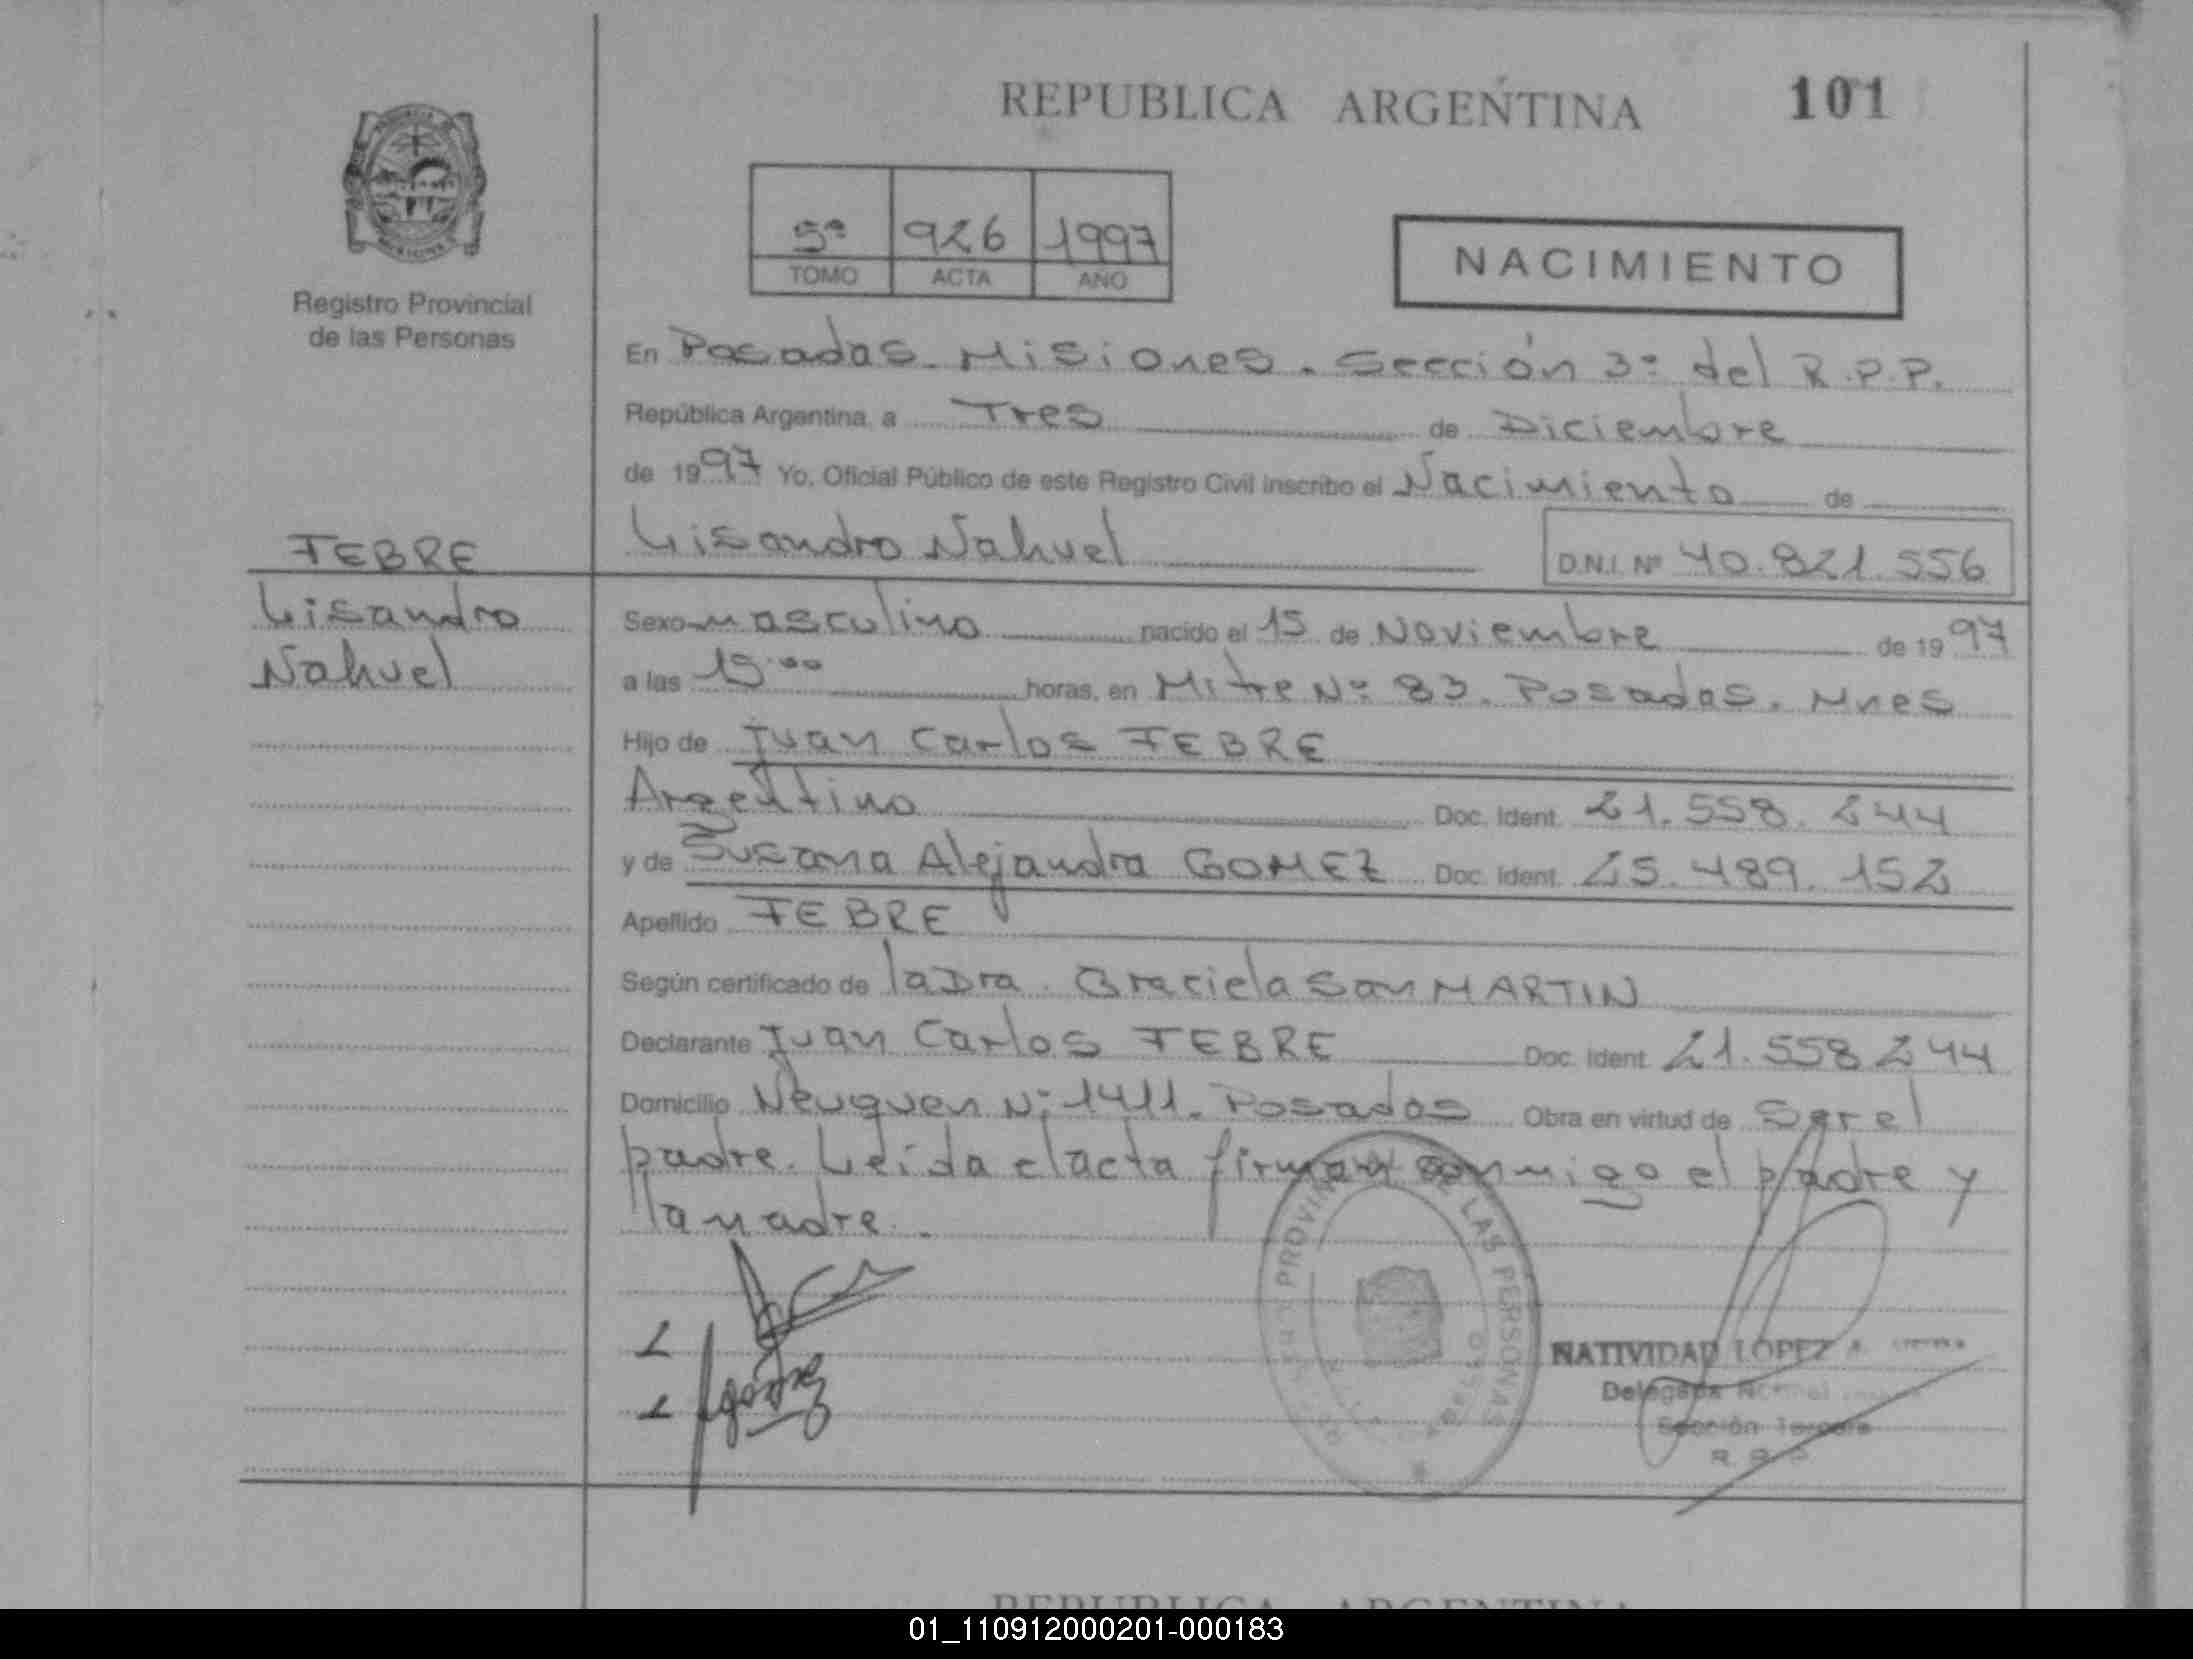 REPUBLICA ARGENTINA 101
5º 926 1997
TOMO ACTA AÑO
NACIMIENTO
Registro Provincial
de las Personas
En Posadas. Misiones. Sección 3º del R.P.P.
República Argentina, a Tres de Diciembre
de 1997 Yo, Oficial Público de este Registro Civil inscribo el Nacimiento de
Lisandro Nahuel D.N.I. Nº 40.821.556
FEBRE
Lisandro
Nahuel
Sexo masculino nacido el 15 de Noviembre de 1997
a las 15:00 horas, en Mitre Nº 83. Posadas. Mnes
Hijo de Juan Carlos FEBRE
Argentino Doc. Ident. 21.558.244
y de Susana Alejandra GOMEZ Doc. Ident. 25.489.152
Apellido FEBRE
Según certificado de la Dra. Graciela San MARTIN
Declarante Juan Carlos FEBRE Doc. Ident. 21.558.244
Domicilio Neuquen Nº 1411. Posadas Obra en virtud de Ser el
padre. Leída el acta firman conmigo el padre y
la madre.
PROVINCIAL DE LAS PERSONAS
NATIVIDAD LOPEZ
Delegada Normal
Sección Tercera
R. P. P.
REPUBLICA ARGENTINA
01_110912000201-000183